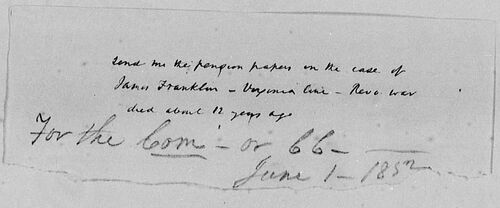 Send me the pension papers in the case of
James Franklin - Virginia line - Revo. war
died about 12 years ago
For the Com - or 66 -
June 1 - 1852